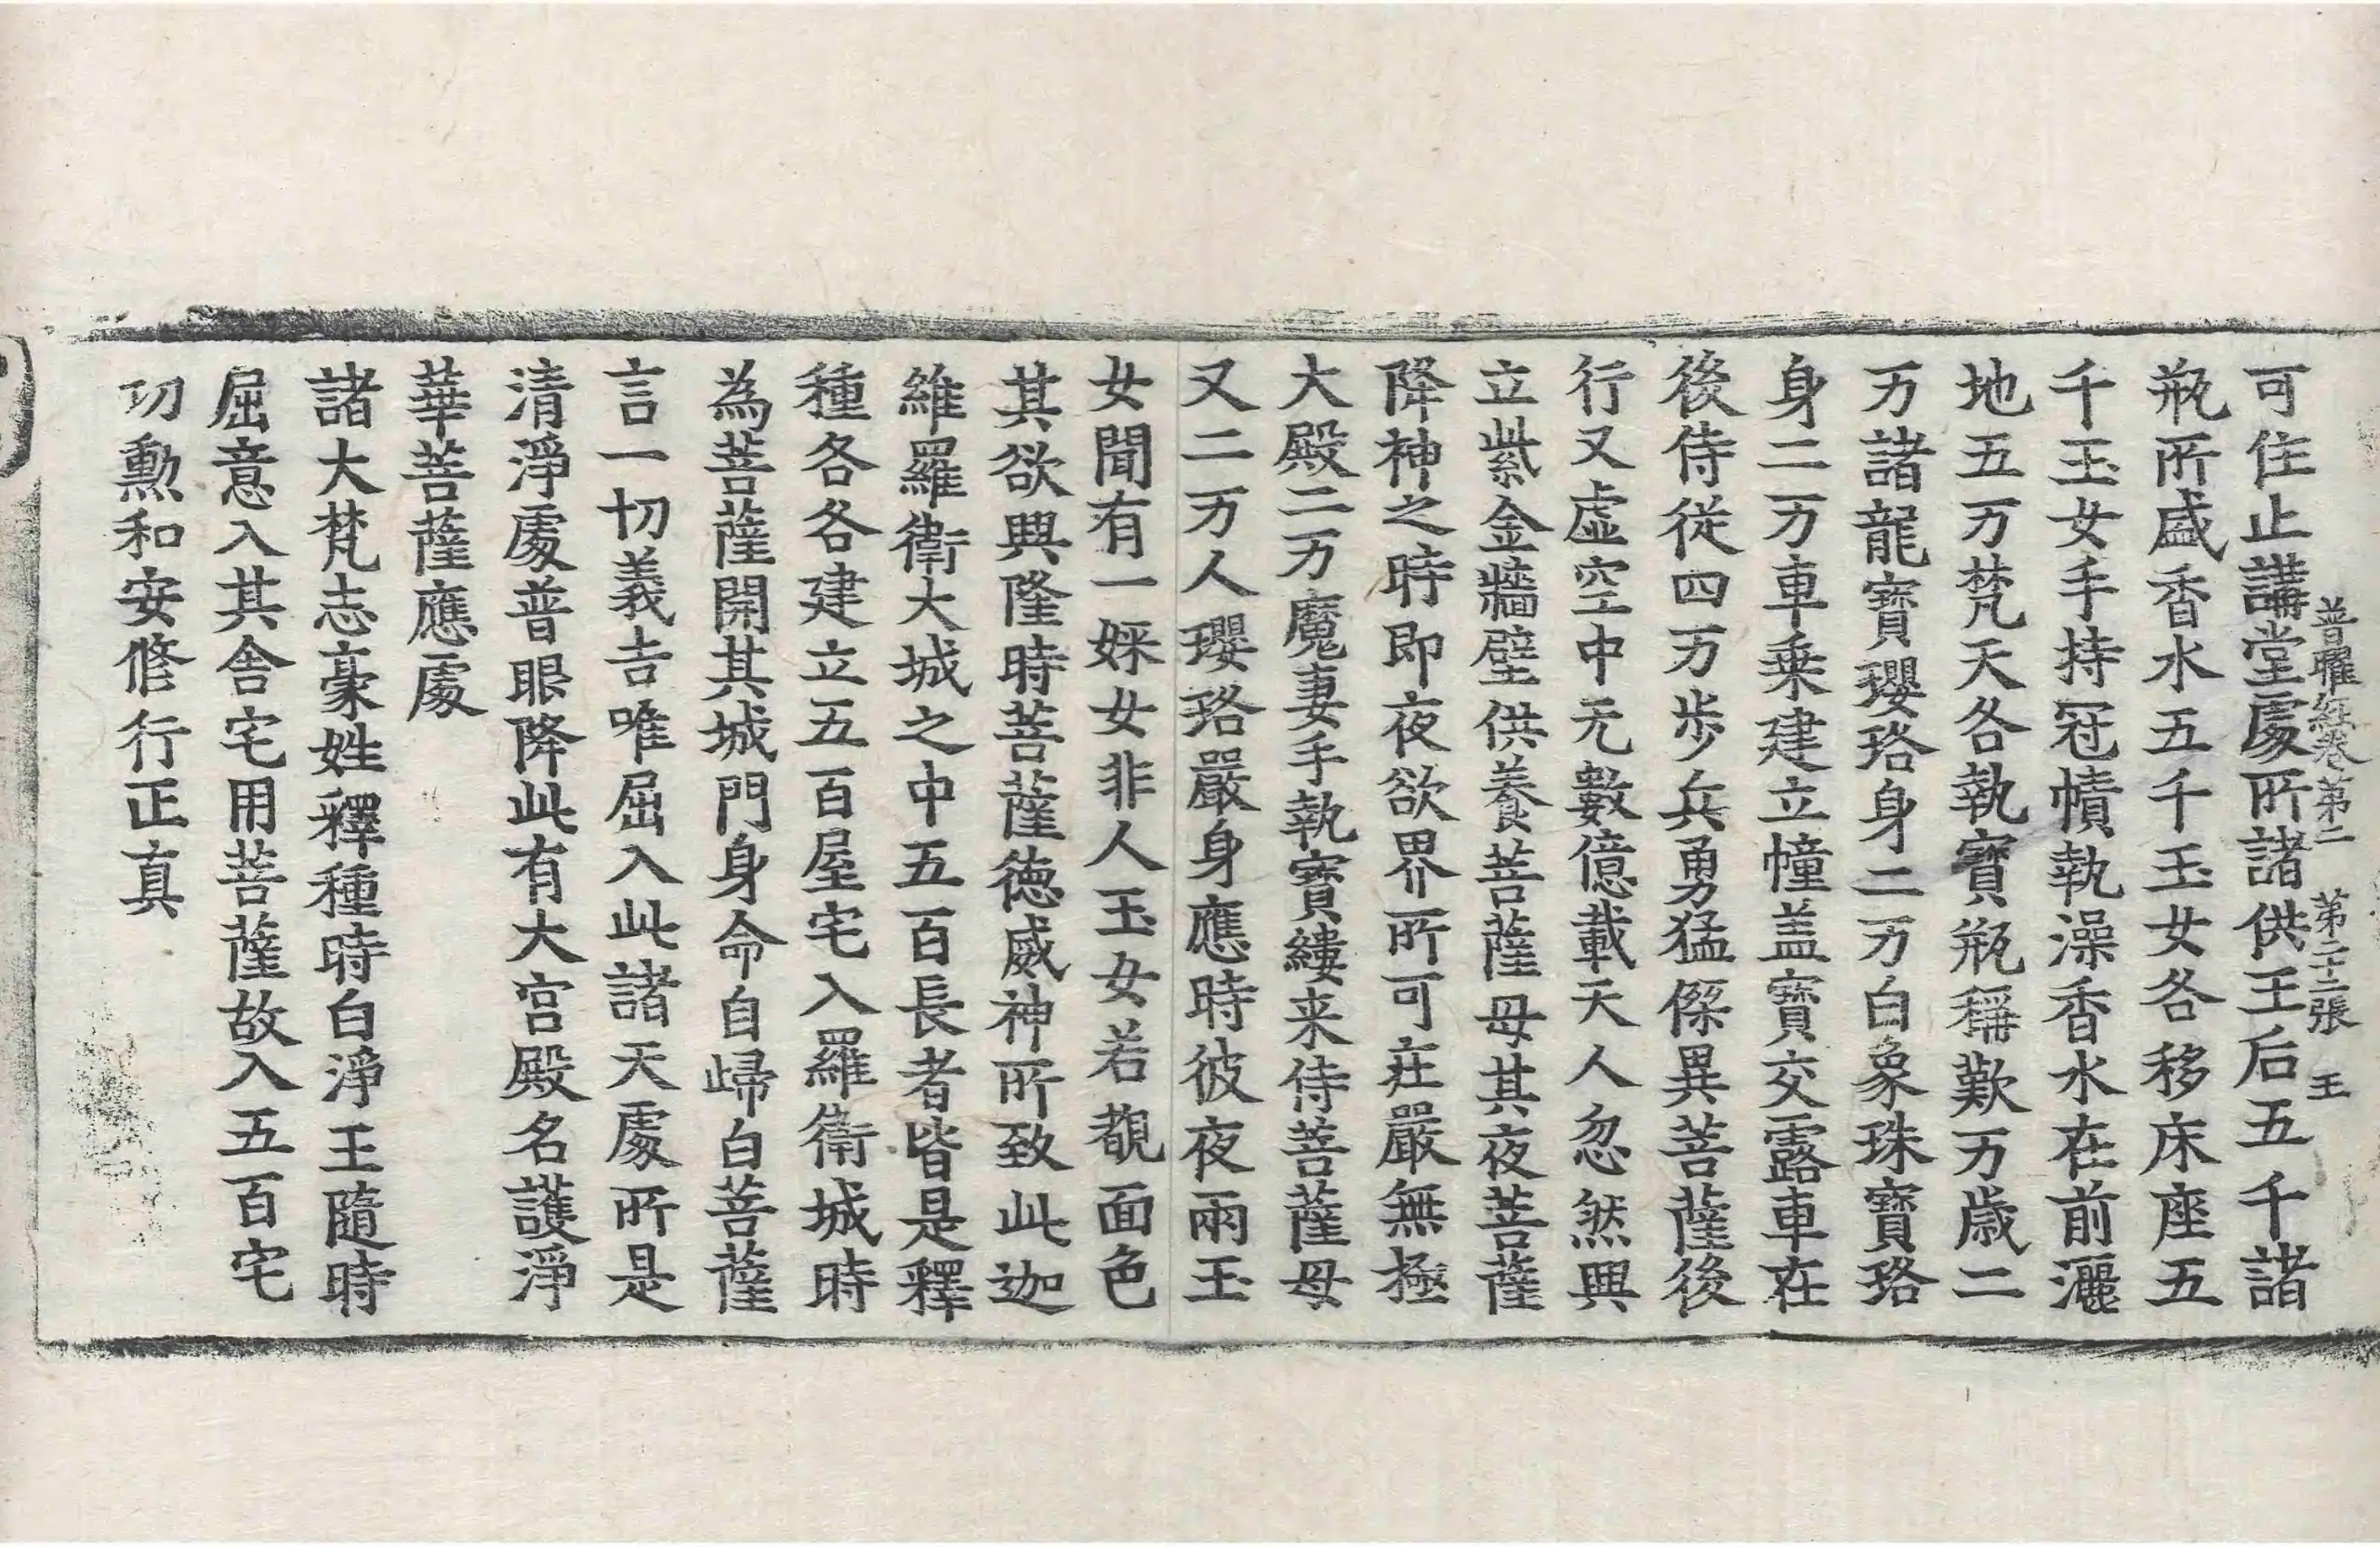 普曜經卷第二 第二十二張 王
可住止講堂處所諸供王后五千諸
瓶所盛香水五千玉女各移床座五
千玉女手持冠幘執澡香水在前灑
地五万梵天各執寶瓶稱歎万歲二
万諸龍寶瓔珞身二万白象珠寶珞
身二万車乗建立幢盖寶交露車在
後侍從四万步兵勇猛傑異菩薩後
行又虛空中无數億載天人忽然興
立紫金牆壁供養菩薩母其夜菩薩
降神之時即夜欲界所可莊嚴無極
大殿二万魔妻手執寶縷来侍菩薩母
又二万人瓔珞嚴身應時彼夜兩玉
女聞有一婇女非人玉女若覩面色
其欲興隆時菩薩德威神所致此迦
維羅衛大城之中五百長者皆是釋
種各各建立五百屋宅入羅衛城時
為菩薩開其城門身命自歸白菩薩
言一切義吉唯屈入此諸天處所是
清淨處普眼降此有大宮殿名護淨
華菩薩應處
諸大梵志豪姓釋種時白淨王隨時
屈意入其舍宅用菩薩故入五百宅
功勲和安修行正真